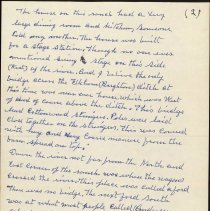 (2)
The house on this ranch had a very
large dining room and kitchen, someone
told my mother. The house was built
for a stage station, though no one ever
mentioned being a stage on this side
(East) of the river. And I believe the only
bridge across the Fulton (Brighton) ditch at
this time was near our house, which was West
of and of course above the ditch. This bridge
had Cottonwood stringers. Poles were laid
close together on the stringers. This was covered
with hay and very coarse manure from the
barn, spread on top.
Down the river not far from the North and
East corner of the ranch was where the wagons
crossed the river. This place was called a ford
There was no bridge. The next ford South
was at what most people called